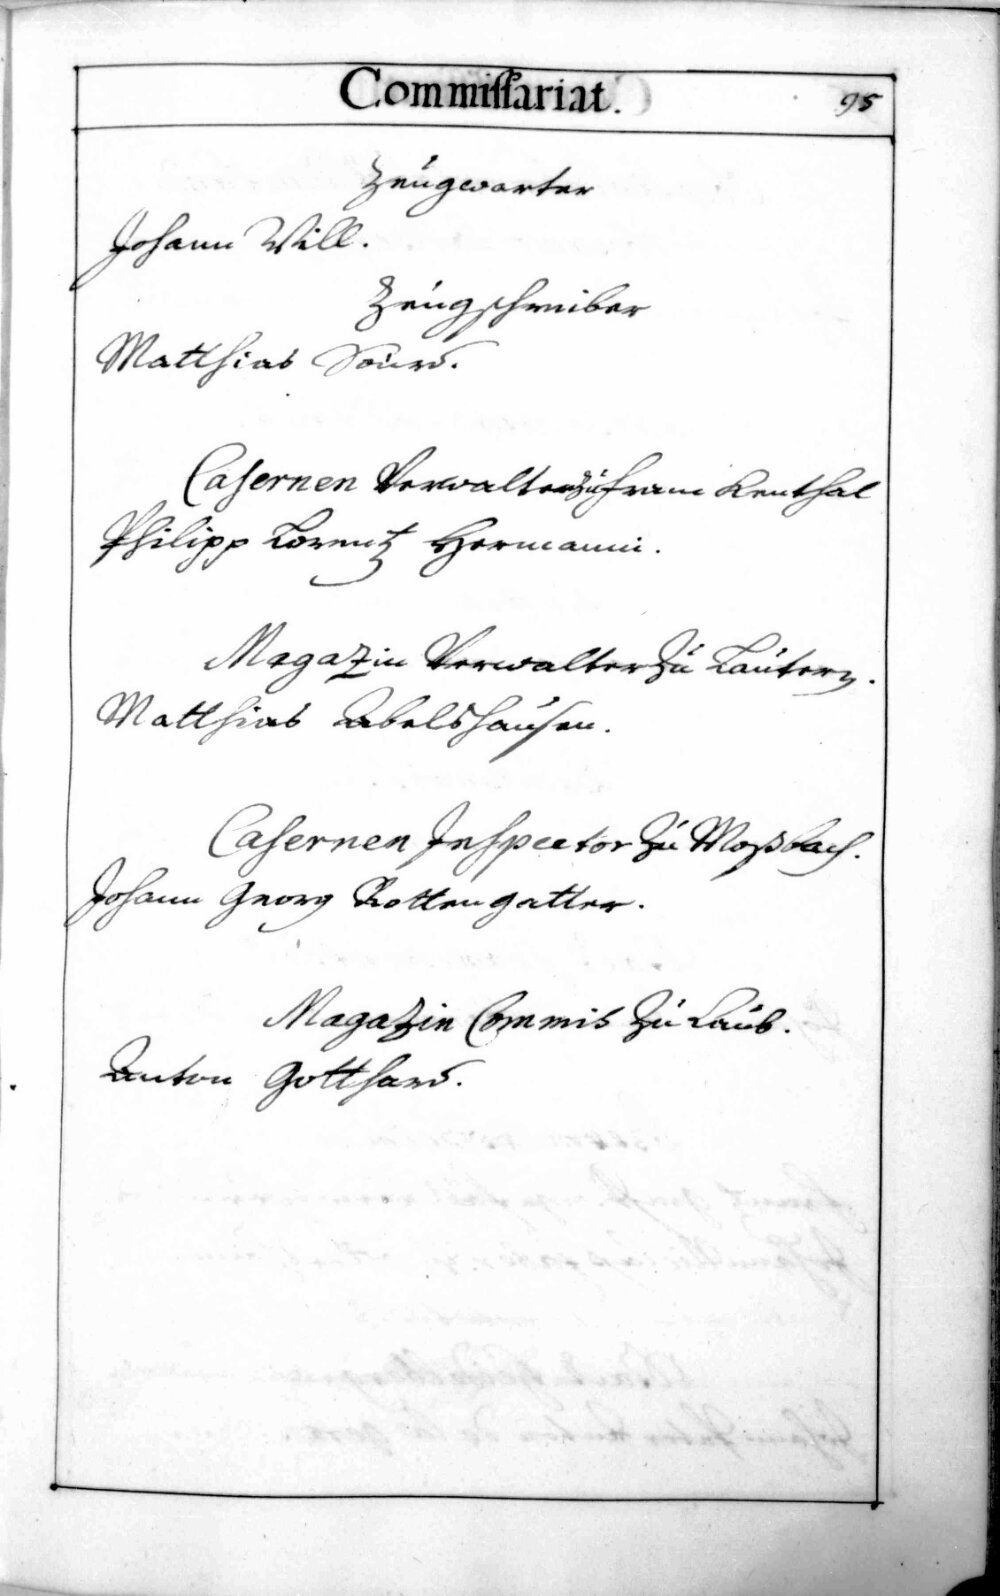 Commissariat.
95
Zeugwarter
Johann Will.
Zeugschreiber
Matthias
Casernen Verwalter zu Franckenthal
Philipp Lorentz Hermanni.
Magazin Verwalter zu Lautern.
Matthias Abelshausen.
Casernen Inspector zu Moßbach.
Johann Georg Rottengatter.
Magazin Commis zu Laub.
Anton Gotthard.